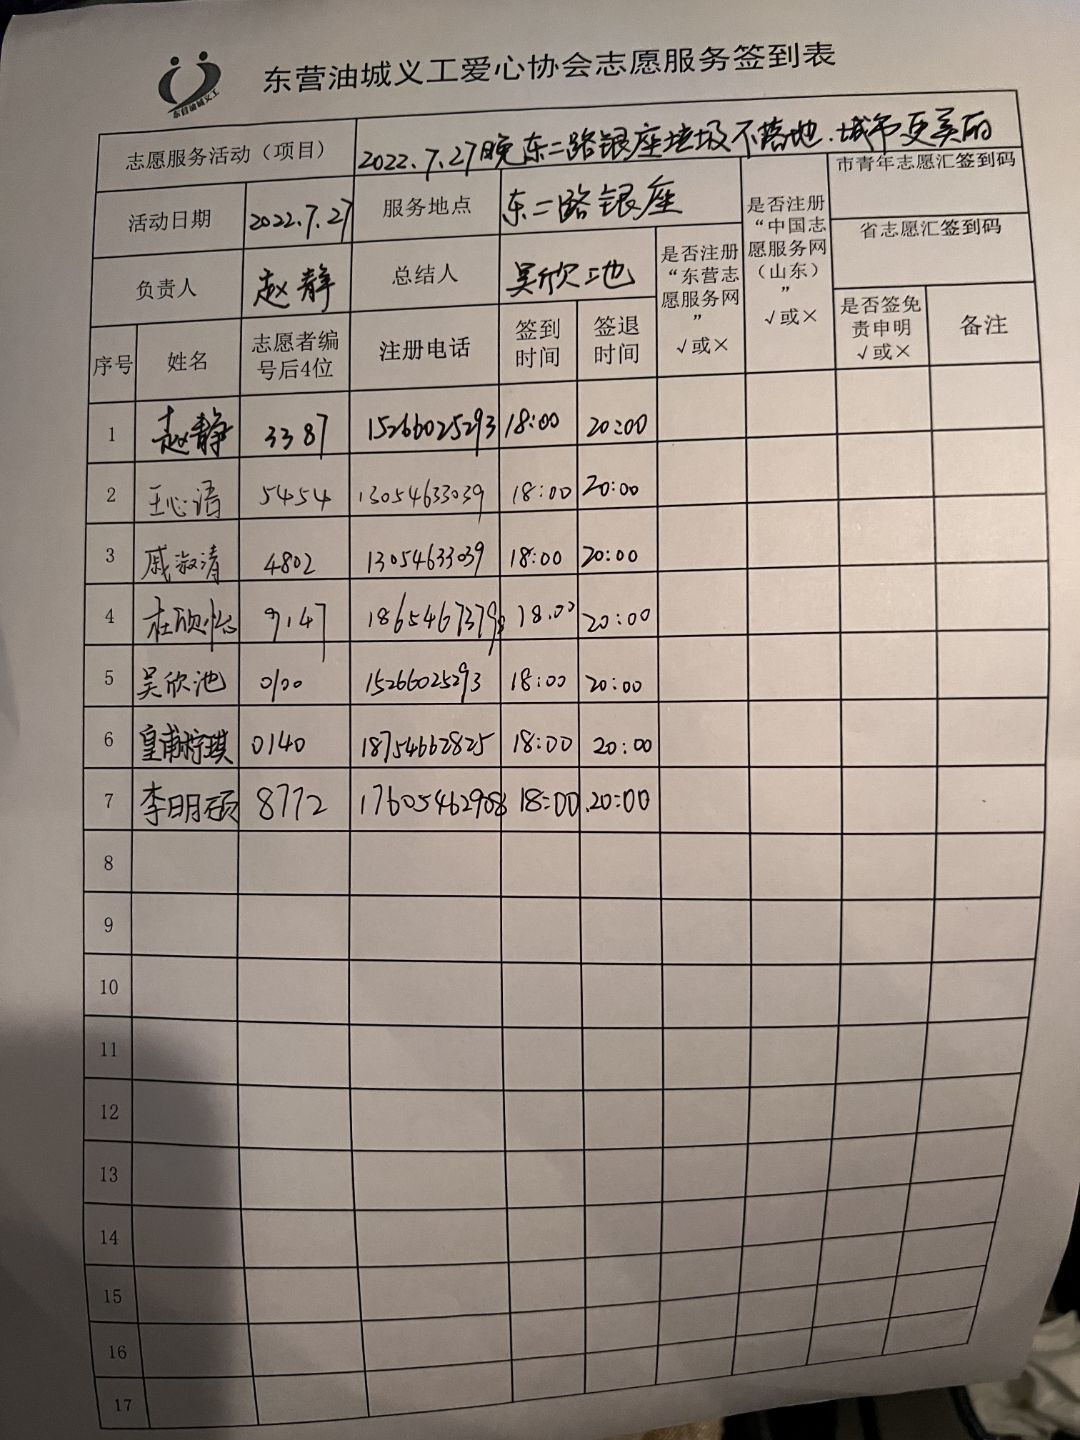 东营油城义工
东营油城义工爱心协会志愿服务签到表
志愿服务活动（项目） 2022.7.27晚东二路银座垃圾不落地.城市更美丽
活动日期 2022.7.27 服务地点 东二路银座 是否注册“中国志愿服务网（山东）” √或× 市青年志愿汇签到码
省志愿汇签到码
负责人 赵静 总结人 吴欣池 是否注册“东营志愿服务网” √或×
序号 姓名 志愿者编号后4位 注册电话 签到时间 签退时间 是否签免责申明 √或× 备注
1 赵静 3387 15266025293 18:00 20:00
2 王心语 5454 13054633039 18:00 20:00
3 戚淑清 4802 13054633039 18:00 20:00
4 杜欣 9147 18.00 20:00
5 吴欣池 0100 15266025293 18:00 20:00
6 皇甫 琪 0140 18754662825 18:00 20:00
7 李明硕 8772 17605462908 18:00 20:00
8
9
10
11
12
13
14
15
16
17